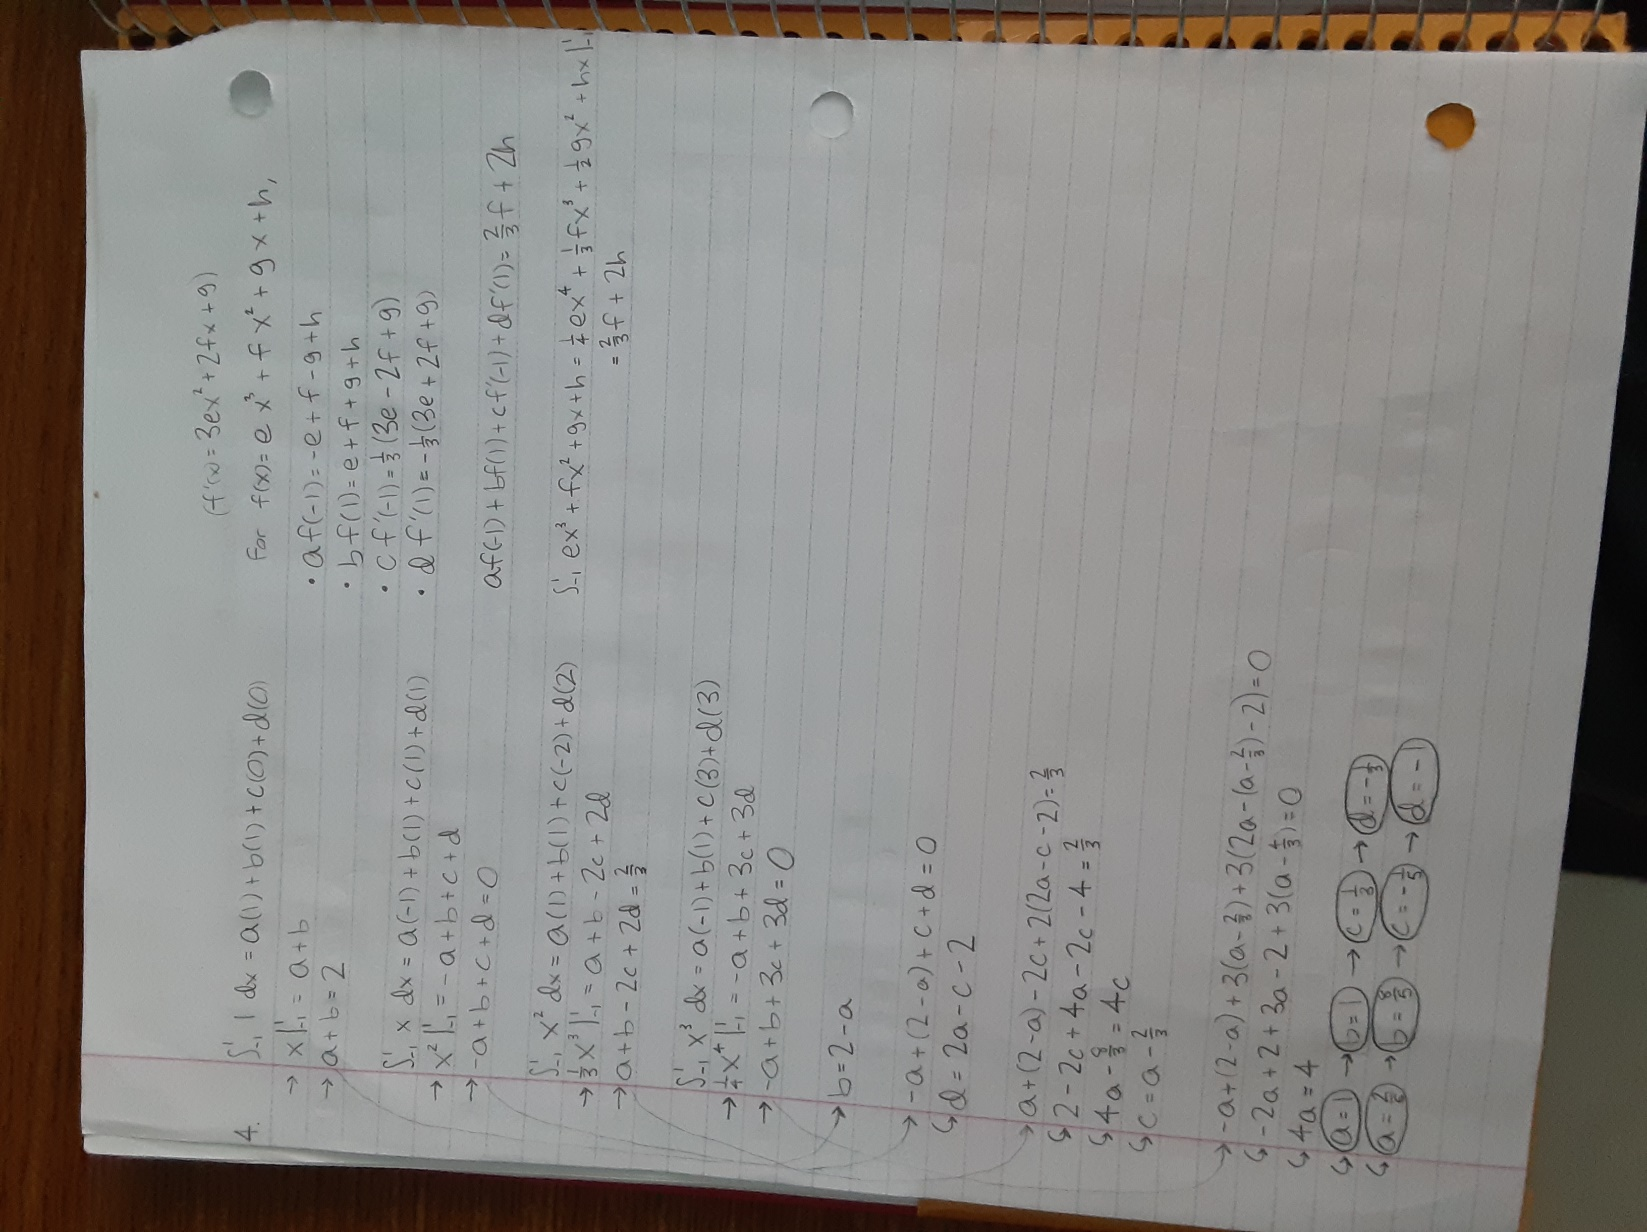 4.
∫₋₁¹ 1 dx = a(1)+b(1)+c(0)+d(0)
→ x|₋₁¹ = a+b
→ a+b=2
∫₋₁¹ x dx = a(-1)+b(1)+c(1)+d(1)
→ x²|₋₁¹ = -a+b+c+d
→ -a+b+c+d=0
∫₋₁¹ x² dx = a(1)+b(1)+c(-2)+d(2)
→ ⅓x³|₋₁¹ = a+b-2c+2d
→ a+b-2c+2d=⅔
∫₋₁¹ x³ dx = a(-1)+b(1)+c(3)+d(3)
→ ¼x⁴|₋₁¹ = -a+b+3c+3d
→ -a+b+3c+3d=0
→ b=2-a
→ -a+(2-a)+c+d=0
↳ d=2a-c-2
→ a+(2-a)-2c+2(2a-c-2)=⅔
↳ 2-2c+4a-2c-4=⅔
↳ 4a-8/3=4c
↳ c=a-⅔
→ -a+(2-a)+3(a-⅔)+3(2a-(a-⅔)-2)=0
↳ -2a+2+3a-2+3(a-4/3)=0
↳ 4a=4
↳ a=1 → b=1 → c=⅓ → d=-⅓
(f'(x)=3ex²+2fx+g)
For f(x)=ex³+fx²+gx+h,
• af(-1)=-e+f-g+h
• bf(1)=e+f+g+h
• cf'(-1)=⅓(3e-2f+g)
• df'(1)=-⅓(3e+2f+g)
af(-1)+bf(1)+cf'(-1)+df'(1)=⅔f+2h
∫₋₁¹ ex³+fx²+gx+h=¼ex⁴+⅓fx³+½gx²+hx|₋₁¹
=⅔f+2h